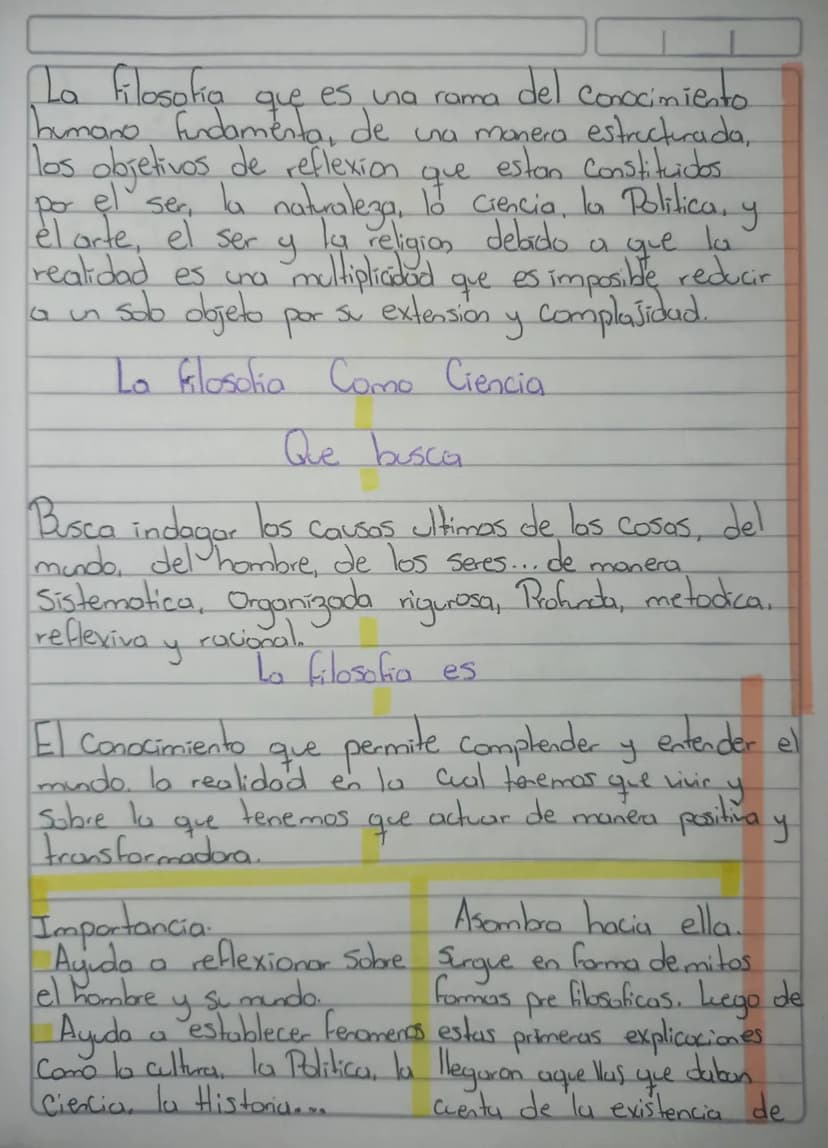 La filosofia que es una rama del conocimiento
humano fundamenta, de una manera estructurada,
los objetivos de reflexion que estan constituidos
por el ser, la naturaleza, la ciencia, la Politica, y
el arte, el ser y la religion debido a que la
realidad es una multiplicidad que es imposible reducir
a un solo objeto por su extension y complajidad.
La filosofia Como Ciencia
Que busca
Busca indagar las causas ultimas de las cosas, del
mundo, del hombre, de los seres... de manera
Sistematica, Organizada rigurosa, Profunda, metodica,
reflexiva y racional.
La filosofia es
El Conocimiento que permite complender y entender el
mundo, la realidad en la cual tenemos que vivir y
Sobre la que tenemos que actuar de manera positiva y
transformadora.
Importancia.
Ayuda a reflexionar Sobre
el hombre y su mundo.
Ayuda a establecer fenomenos
Como la cultura, la Politica, la
Ciencia, la Historia....
Asombro hacia ella.
Surgue en forma de mitos
formas pre filosoficas. Luego de
estas primeras explicaciones
llegaron aquellas que daban
cuenta de la existencia de